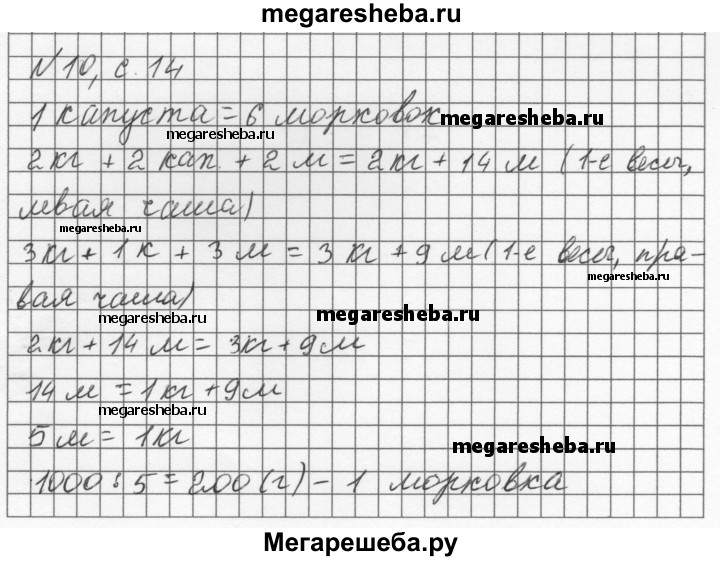 megaresheba.ru
№10, с. 14
1 капуста = 6 морковок megaresheba.ru
megaresheba.ru
2кг + 2 кап + 2 м = 2кг + 14 м (1-е весы,
левая чаша)
megaresheba.ru
3кг + 1 к + 3 м = 3 кг + 9 м (1-е весы, пра-
megaresheba.ru
вая чаша)
megaresheba.ru megaresheba.ru
2кг + 14 м = 3кг + 9м
14 м = 1кг + 9м
megaresheba.ru
5 м = 1кг
megaresheba.ru
1000 : 5 = 200 (г) - 1 морковка
Мегарешеба.ру